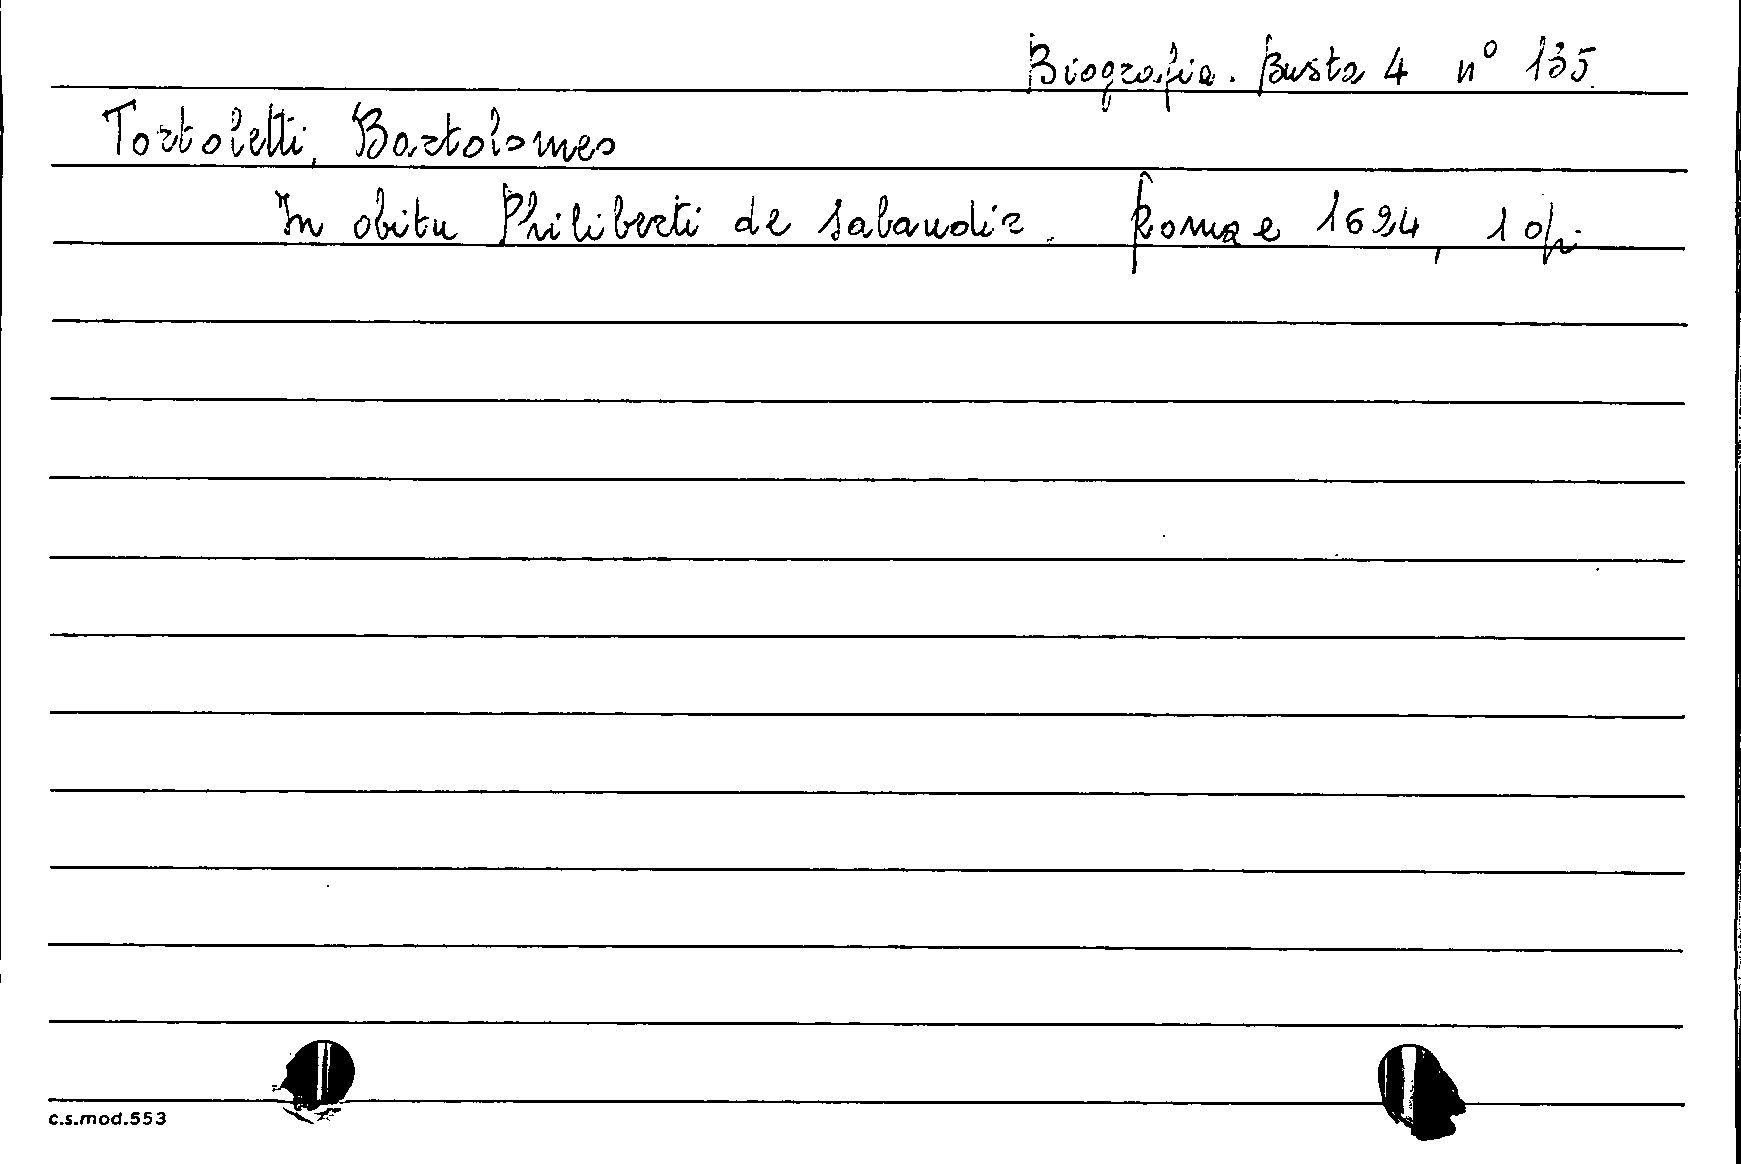 Biografia. Busta 4 n° 135.
Tortoletti, Bartolomeo
In obitu Philiberti de Sabaudia. Romae 1624, 1 op.
c.s.mod.553